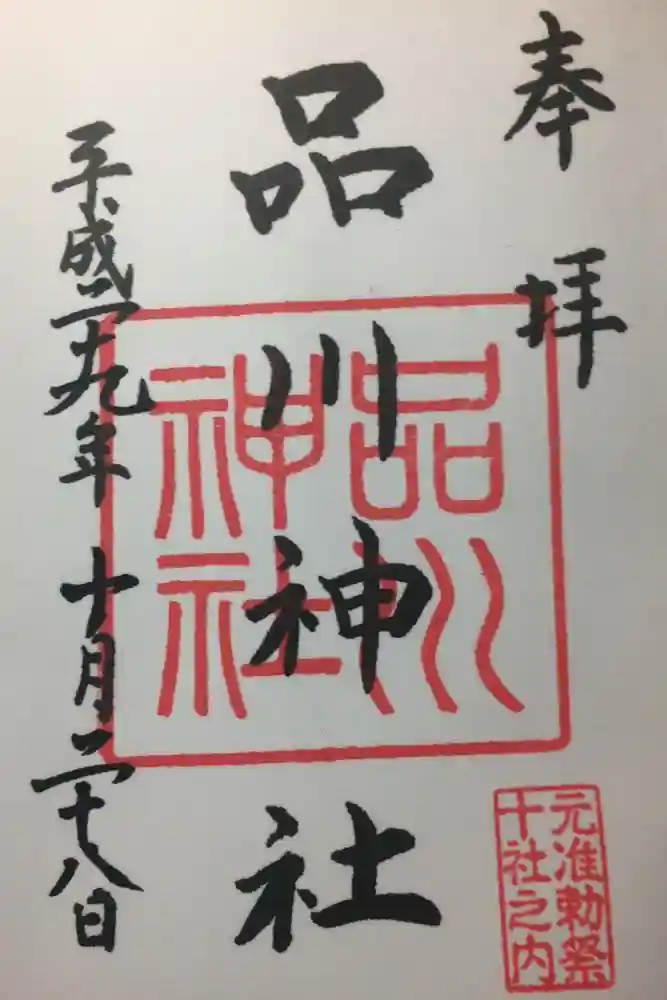 奉拝
品川神社
品川
神社
平成二十九年 十月二十八日
元准勅祭
十社之内